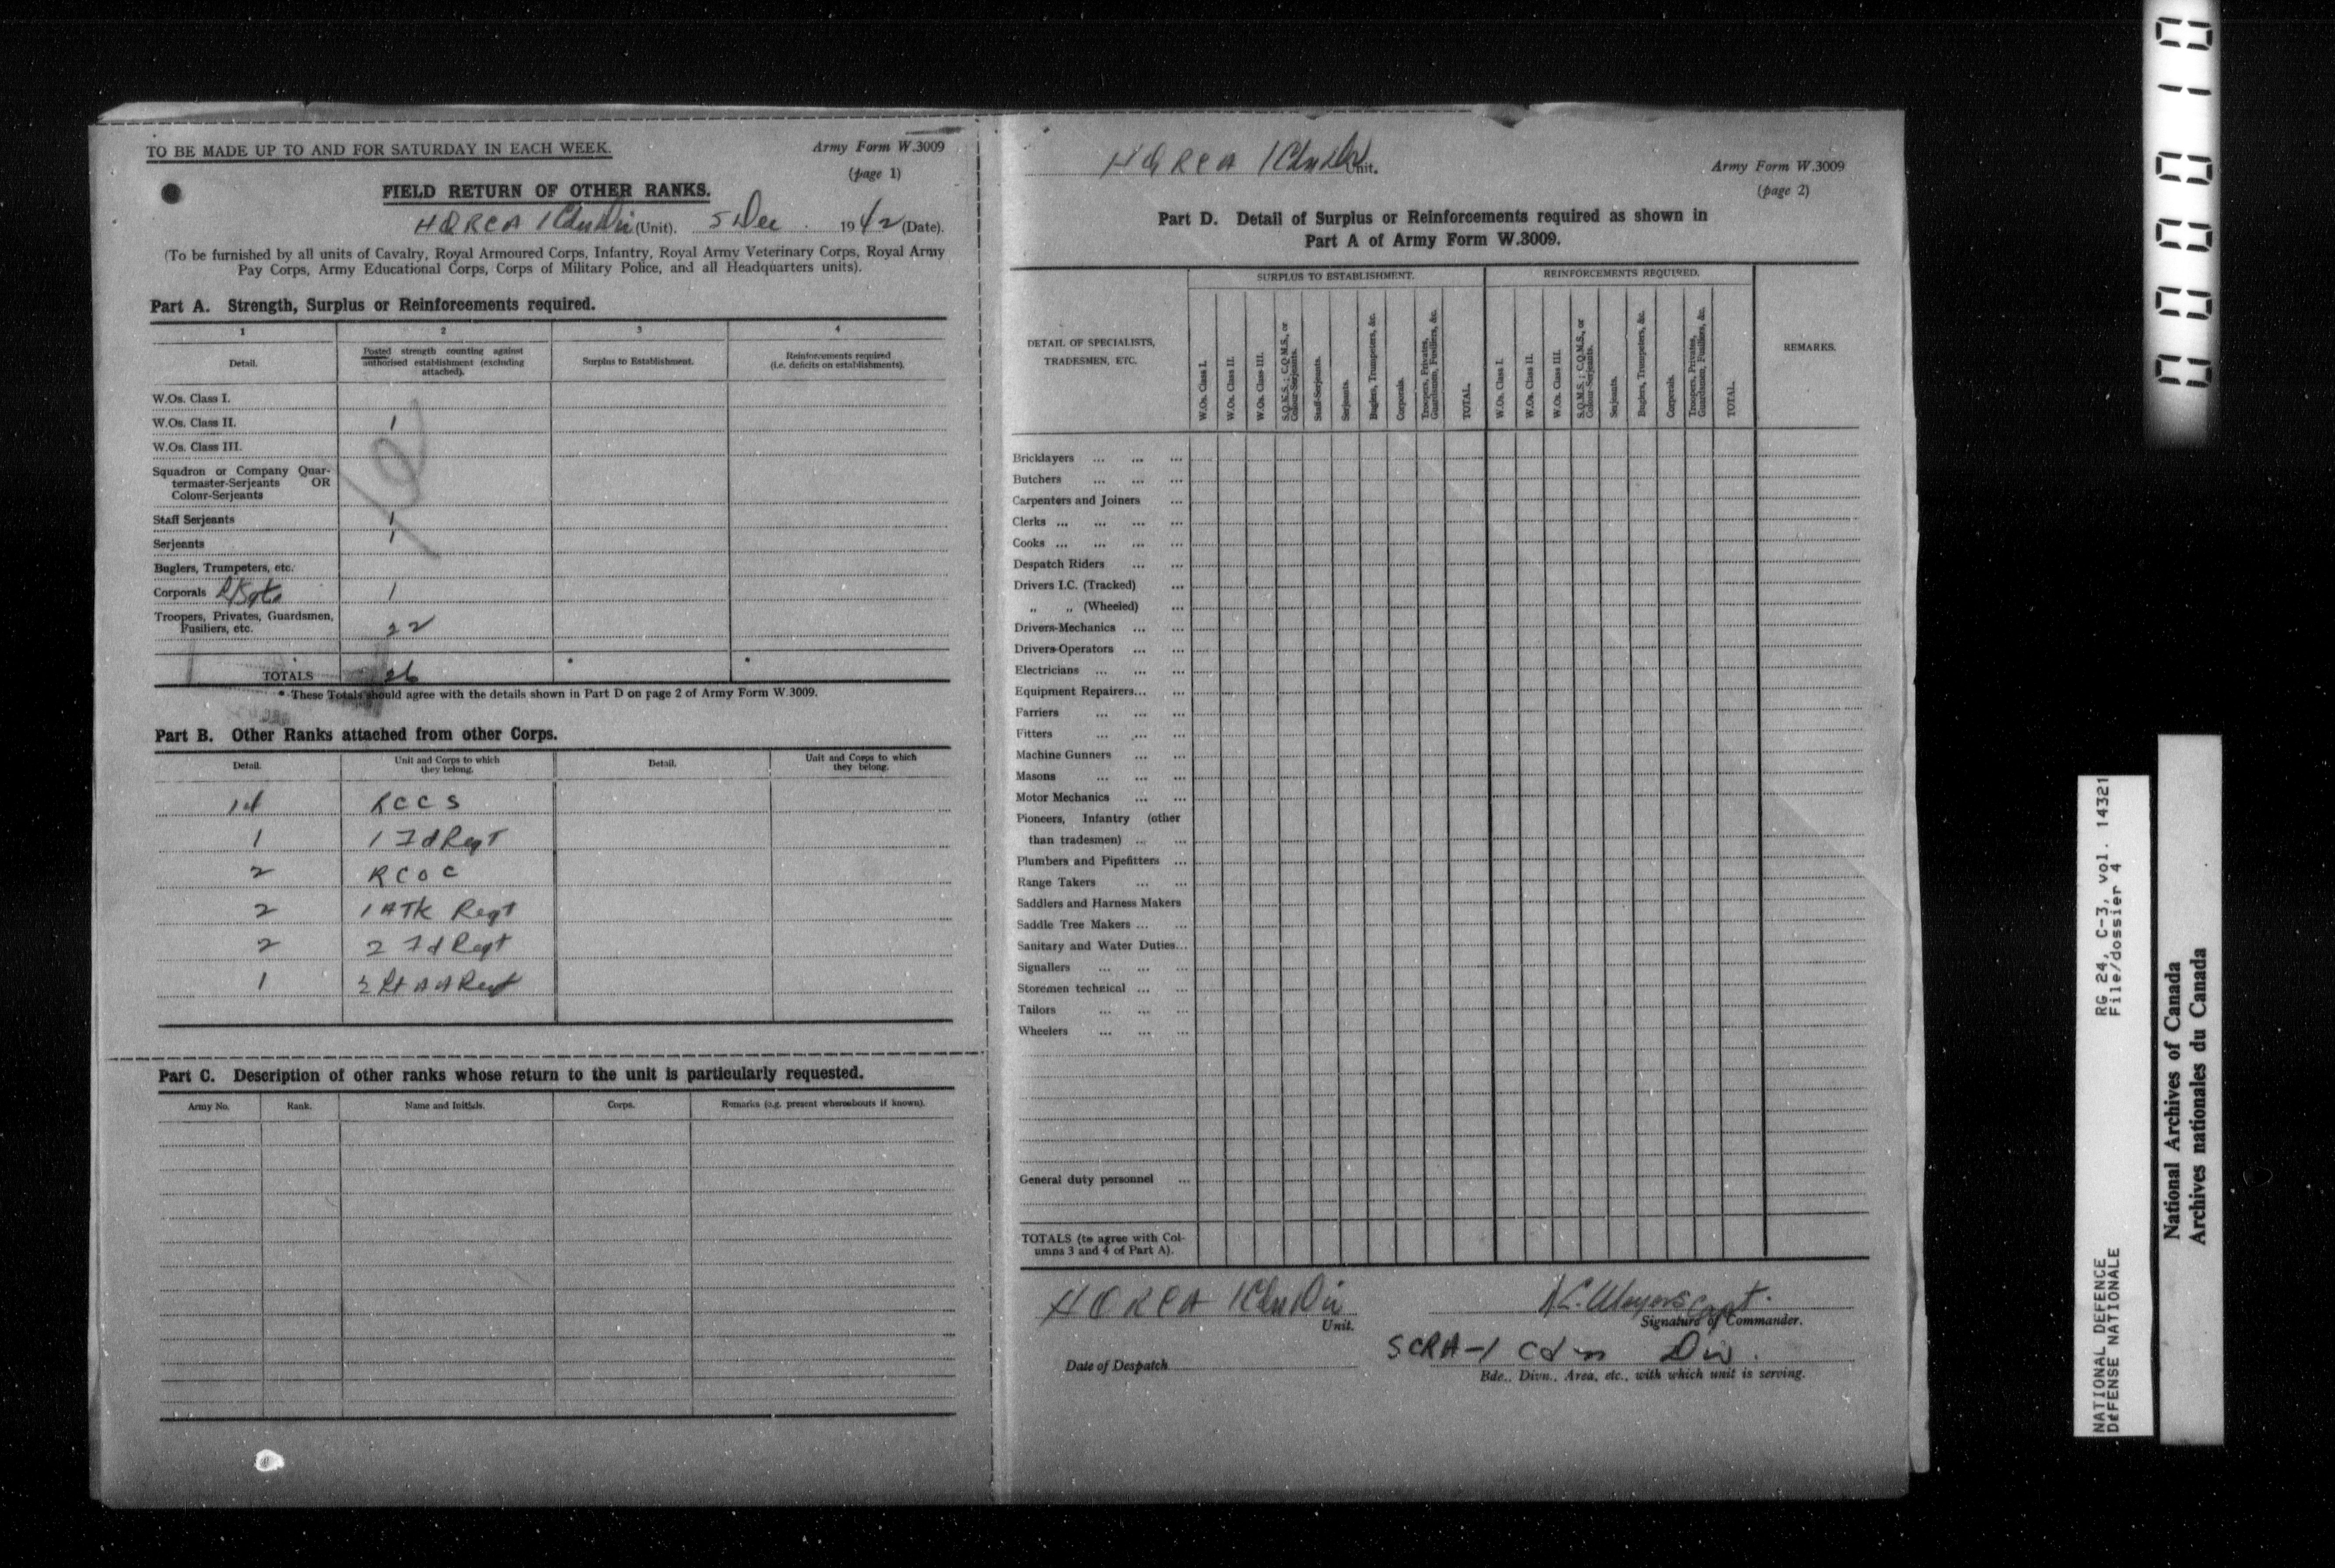 TO BE MADE UP TO AND FOR SATURDAY IN EACH WEEK.
Army Form W.3009
(page 1)
FIELD RETURN OF OTHER RANKS.
HQRCA 1 Cdn Div (Unit). 5 Dec 1942 (Date).
(To be furnished by all units of Cavalry, Royal Armoured Corps, Infantry, Royal Army Veterinary Corps, Royal Army
Pay Corps, Army Educational Corps, Corps of Military Police, and all Headquarters units).
Part A. Strength, Surplus or Reinforcements required.
1 2 3 4
Detail.
Posted strength counting against
authorised establishment (excluding
attached).
Surplus to Establishment.
Reinforcements required
(i.e. deficits on establishments).
W.Os. Class I.
W.Os. Class II. 1
W.Os. Class III.
Squadron or Company Quar-
termaster-Serjeants OR
Colour-Serjeants
Staff Serjeants 1
Serjeants 1
Buglers, Trumpeters, etc.
Corporals L/Sgts 1
Troopers, Privates, Guardsmen,
Fusiliers, etc. 22
TOTALS 26 * *
* These Totals should agree with the details shown in Part D on page 2 of Army Form W.3009.
Part B. Other Ranks attached from other Corps.
Detail.
Unit and Corps to which
they belong.
Detail.
Unit and Corps to which
they belong.
14 RCCS
1 1 Fd Regt
2 RCOC
2 1 ATK Regt
2 2 Fd Regt
1 2 Lt AA Regt
Part C. Description of other ranks whose return to the unit is particularly requested.
Army No. Rank. Name and Initials. Corps. Remarks (e.g. present whereabouts if known).
HQ RCA 1 Cdn Div Unit.
Army Form W.3009
(page 2)
Part D. Detail of Surplus or Reinforcements required as shown in
Part A of Army Form W.3009.
DETAIL OF SPECIALISTS,
TRADESMEN, ETC.
SURPLUS TO ESTABLISHMENT.
W.Os. Class I.
W.Os. Class II.
W.Os. Class III.
S.Q.M.S.; C.Q.M.S., or
Colour-Serjeants.
Staff-Serjeants.
Serjeants.
Buglers, Trumpeters, &c.
Corporals.
Troopers, Privates,
Guardsmen, Fusiliers, &c.
TOTAL.
REINFORCEMENTS REQUIRED.
W.Os. Class I.
W.Os. Class II.
W.Os. Class III.
S.Q.M.S.; C.Q.M.S., or
Colour-Serjeants.
Serjeants.
Buglers, Trumpeters, &c.
Corporals.
Troopers, Privates,
Guardsmen, Fusiliers, &c.
TOTAL.
REMARKS.
Bricklayers ... ... ...
Butchers ... ... ...
Carpenters and Joiners ...
Clerks ... ... ... ...
Cooks ... ... ... ...
Despatch Riders ... ...
Drivers I.C. (Tracked) ...
„ „ (Wheeled) ...
Drivers-Mechanics ... ...
Drivers-Operators ... ...
Electricians ... ... ...
Equipment Repairers... ...
Farriers ... ... ...
Fitters ... ... ...
Machine Gunners ... ...
Masons ... ... ...
Motor Mechanics ... ...
Pioneers, Infantry (other
than tradesmen) ... ...
Plumbers and Pipefitters ...
Range Takers ... ...
Saddlers and Harness Makers
Saddle Tree Makers ... ...
Sanitary and Water Duties...
Signallers ... ... ...
Storemen technical ... ...
Tailors ... ... ...
Wheelers ... ... ...
General duty personnel ...
TOTALS (to agree with Col-
umns 3 and 4 of Part A).
HQ RCA 1 Cdn Div
Unit.
Capt.
Signature of Commander.
Date of Despatch
SCRA-1 Cdn Div.
Bde., Divn., Area, etc., with which unit is serving.
NATIONAL DEFENCE RG 24, C-3, vol. 14321
DéFENSE NATIONALE File/dossier 4
National Archives of Canada
Archives nationales du Canada